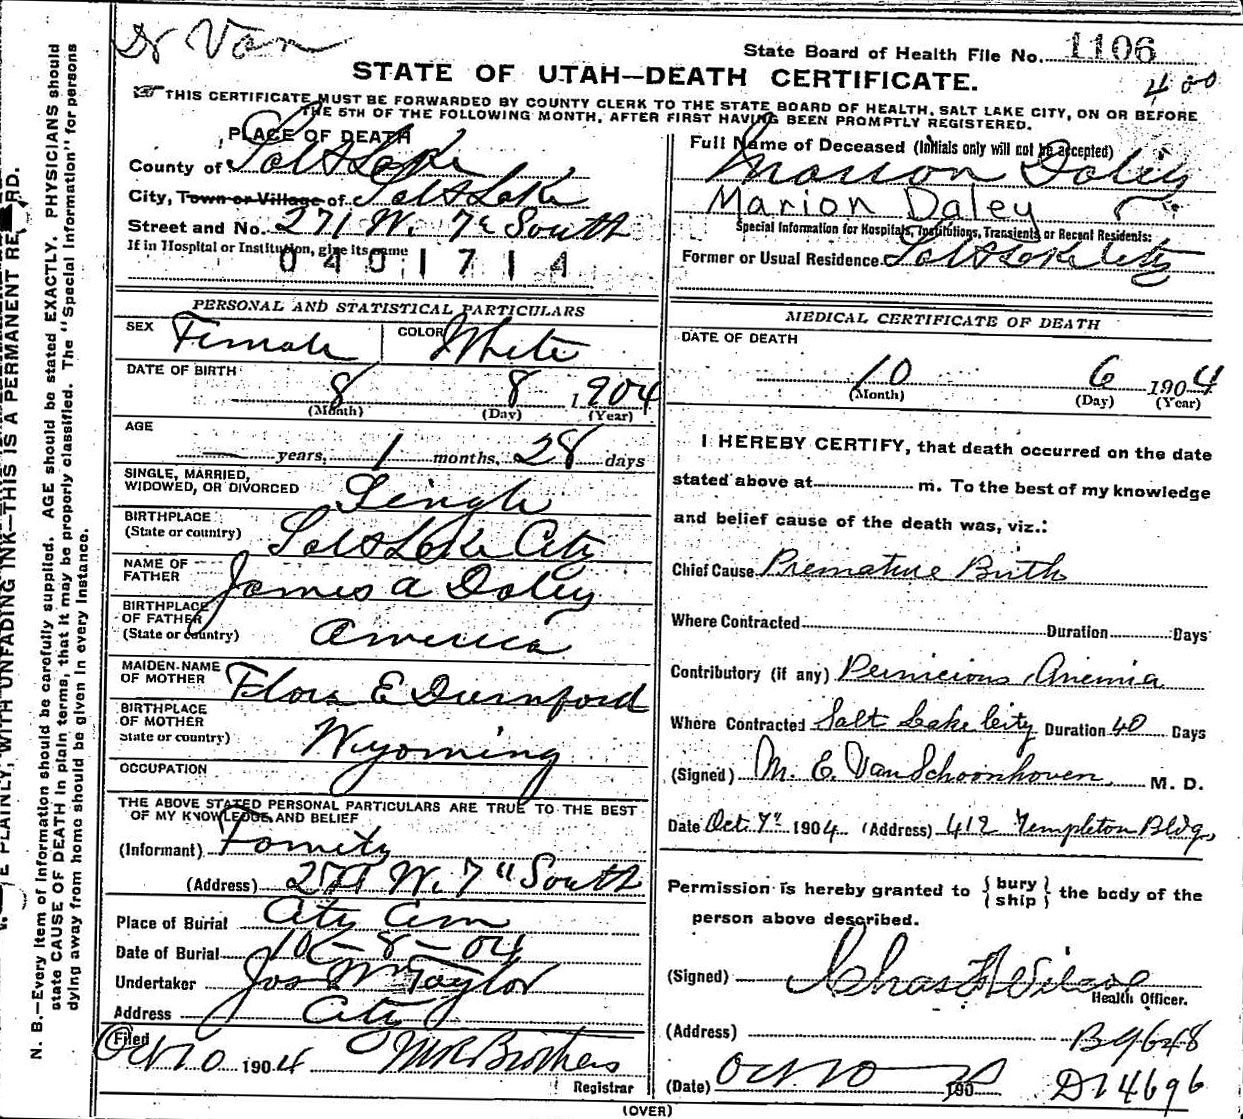 Dr Van
State Board of Health File No. 1106
STATE OF UTAH—DEATH CERTIFICATE.
400
THIS CERTIFICATE MUST BE FORWARDED BY COUNTY CLERK TO THE STATE BOARD OF HEALTH, SALT LAKE CITY, ON OR BEFORE
THE 5TH OF THE FOLLOWING MONTH, AFTER FIRST HAVING BEEN PROMPTLY REGISTERED.
PLACE OF DEATH
County of Salt Lake
City, Town or Village of Salt Lake
Street and No. 271 W. 7" South
If in Hospital or Institution, give its name
0401714
PERSONAL AND STATISTICAL PARTICULARS
SEX Female COLOR White
DATE OF BIRTH
8 8 1904
(Month) (Day) (Year)
AGE
— years, 1 months, 28 days
SINGLE, MARRIED,
WIDOWED, OR DIVORCED Single
BIRTHPLACE
(State or country) Salt Lake City
NAME OF
FATHER James A Daley
BIRTHPLACE
OF FATHER
(State or country) America
MAIDEN-NAME
OF MOTHER Flora E Durnford
BIRTHPLACE
OF MOTHER
State or country) Wyoming
OCCUPATION
THE ABOVE STATED PERSONAL PARTICULARS ARE TRUE TO THE BEST
OF MY KNOWLEDGE AND BELIEF
(Informant) Family
(Address) 271 W. 7" South
Place of Burial City Cem
Date of Burial 10-8-04
Undertaker Jos Wm Taylor
Address City
Filed
Oct 10 1904
Registrar
Full Name of Deceased (Initials only will not be accepted)
Marion Daley
Marion Daley
Special Information for Hospitals, Institutions, Transients or Recent Residents:
Former or Usual Residence Salt Lake City
MEDICAL CERTIFICATE OF DEATH
DATE OF DEATH
10 6 1904
(Month) (Day) (Year)
I HEREBY CERTIFY, that death occurred on the date
stated above at m. To the best of my knowledge
and belief cause of the death was, viz.:
Chief Cause Premature Birth
Where Contracted Duration Days
Contributory (if any) Pernicious Anemia
Where Contracted Salt Lake City Duration 40 Days
(Signed) M. E. Van Schoonhoven M. D.
Date Oct. 7" 1904 (Address) 412 Templeton Bldg,
Permission is hereby granted to { bury ship } the body of the
person above described.
(Signed) Chas H Wilcox
Health Officer.
(Address) B9648
(Date) Oct 10 190 D14696
(OVER)
N. B.—Every item of information should be carefully supplied. AGE should be stated EXACTLY. PHYSICIANS should
state CAUSE OF DEATH in plain terms, that it may be properly classified. The "Special Information" for persons
dying away from home should be given in every instance.
E PLAINLY, WITH UNFADING INK—THIS IS A PERMANENT RE RD.